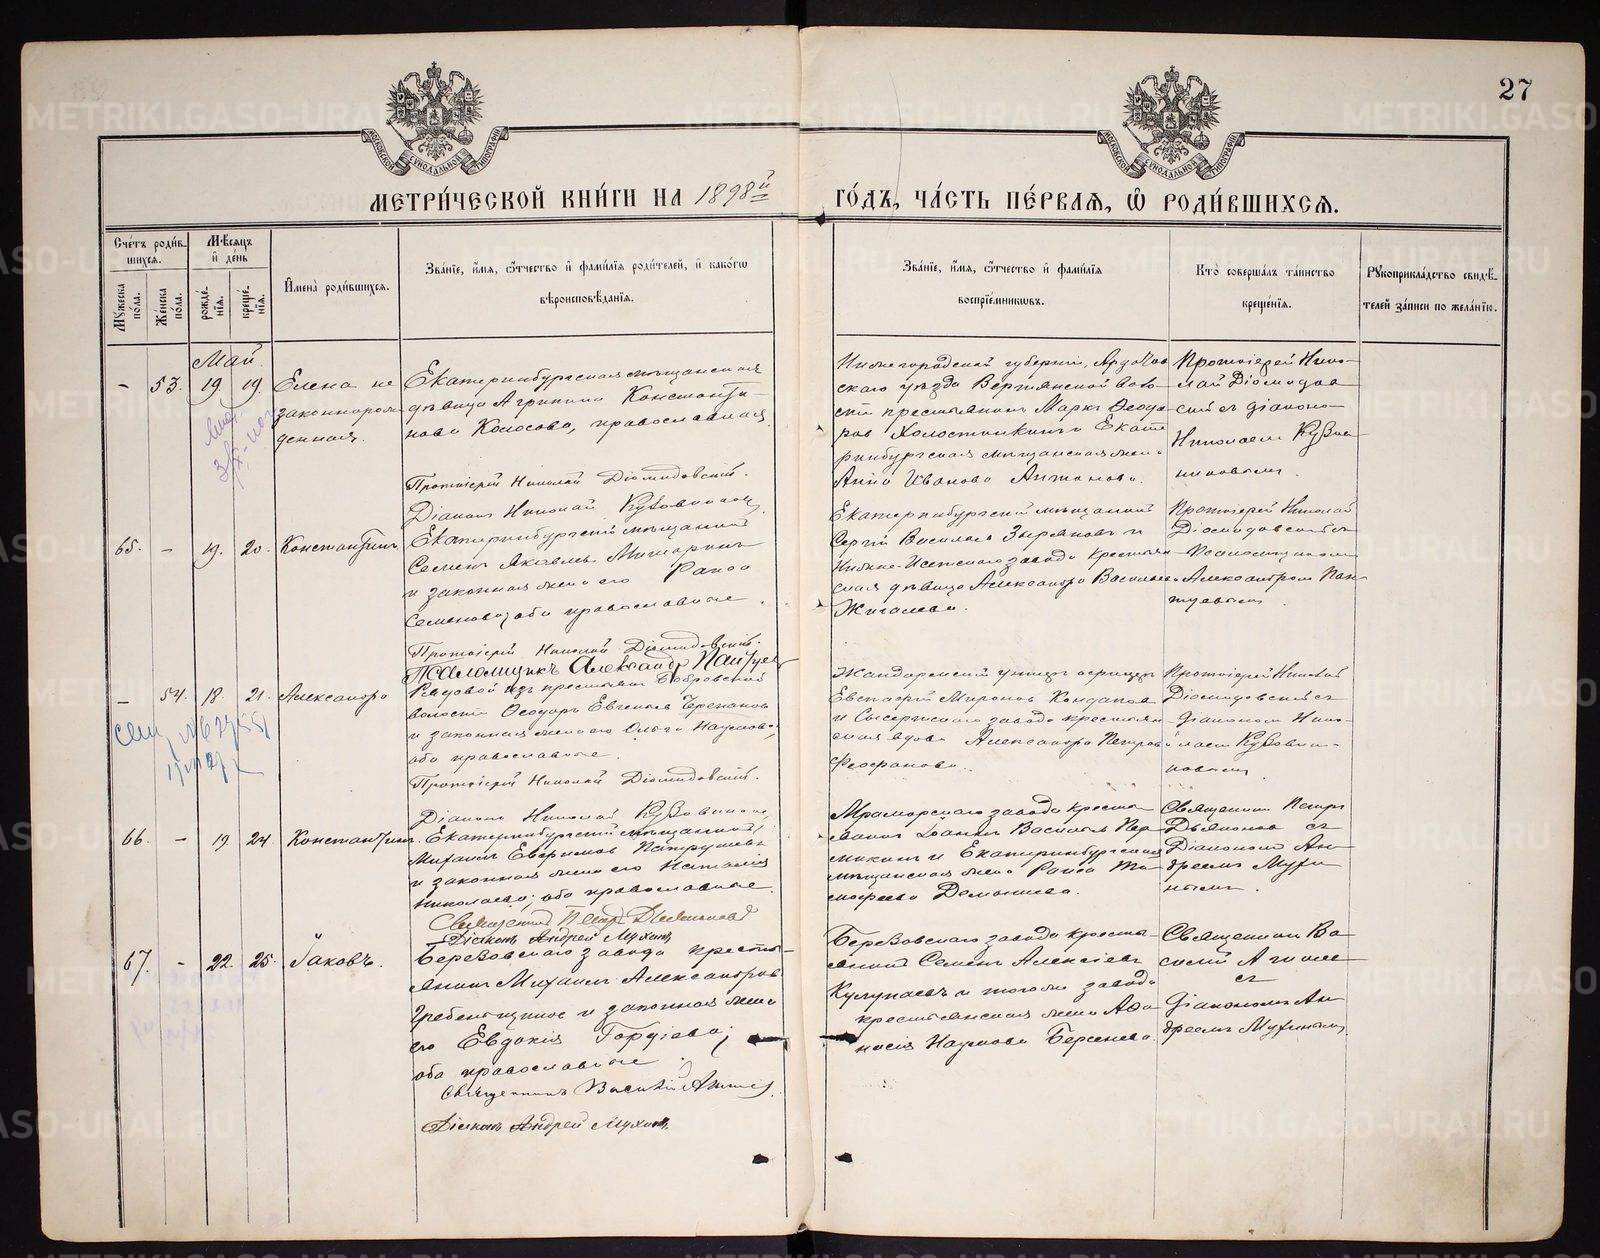 27
МОСКОВСКОЙ СѴНОДАЛЬНОЙ ТИПОГРАФІИ
МОСКОВСКОЙ СѴНОДАЛЬНОЙ ТИПОГРАФІИ
МЕТРИ́ЧЕСКОЙ КНИ́ГИ НА 1898й
ГО́ДЪ, ЧА́СТЬ ПЕ́РВАѦ, Ѡ҆ РОДИ́ВШИХСѦ.
Сче́тъ роди́в-
шихсѧ.
Мꙋ́жеска по́ла.
Же́нска по́ла.
Мѣ́сѧцъ
и҆ де́нь
рожде́-
нїѧ.
креще́-
нїѧ.
И҆мена̀ роди́вшихсѧ.
Зва́нїе, и҆́мѧ, ѻ҆́тчество и҆ фами́лїѧ роди́телей, и҆ како́гѡ
вѣроисповѣ́данїѧ.
Зва́нїе, и҆́мѧ, ѻ҆́тчество и҆ фами́лїѧ
воспрїе́мникѡвъ.
Кто̀ соверша́лъ та́инство
креще́нїѧ.
Рꙋкоприкла́дство свидѣ́-
телей за́писи по жела́нїю.
Май
– 53. 19 19. Елена не
законнорож
денная.
Екатеринбургская мѣщанская
дѣвица Агрипина Константи-
нова Колосова, православная
Протоіерей Николай Діомидовскій.
Діаконъ Николай Кузовниковъ
Нижегородской губерніи, Ардатов
скаго уѣзда Вертянской воло
сти крестьянинъ Маркъ Ѳеодо
ровъ Холостякинъ и Екате
ринбургская мѣщанская жена
Анна Иванова Антонова.
Протоіерей Нико-
лай Діомидов
скій съ діакономъ
Николаемъ Кузов
никовымъ.
65. – 19. 20. Константинъ
Екатеринбургскій мѣщанинъ
Семенъ Яковлевъ
и законная жена его Раиса
Семенова, оба православные.
Протоіерей Николай Діомидовскій.
Псаломщикъ Александръ Пантуевъ
Екатеринбургскій мѣщанинъ
Сергій Васильевъ Зыряновъ и
Нижне-Исетскаго завода крестьян
ская дѣвица Александра Васильева
Жигалева.
Протоіерей Николай
Діомидовскій съ
Псаломщикомъ
Александромъ Пан-
туевымъ.
– 54. 18. 21. Александра
Рядовой изъ крестьянъ Бобровской
волости Ѳеодоръ Евгеньевъ
и законная жена его Ольга Наумова,
оба православные.
Протоіерей Николай Діомидовскій.
Діаконъ Николай Кузовниковъ
Жандармскій унтеръ офицеръ
Евстафій Мироновъ
и Сысертскаго завода крестьян
ская вдова Александра Петрова
Феофанова.
Протоіерей Николай
Діомидовскій съ
діакономъ Нико-
лаемъ Кузовни-
ковымъ.
66. – 19 24. Константинъ
Екатеринбургскій мѣщанинъ
Михаилъ Евфимовъ Патрушевъ
и законная жена его Наталія
Николаева; оба православные.
Священникъ Петръ Дьяконовъ
Діаконъ Андрей Мухинъ
Мраморскаго завода кресть
янинъ Іоаннъ Васильевъ Пер
мякинъ и Екатеринбургская
мѣщанская жена Раиса Ти
мофеева Демышева.
Священникъ Петръ
Дьяконовъ съ
Діакономъ Ан
дреемъ Мухи
нымъ.
67. – 22. 25. Іаковъ.
Березовскаго завода кресть-
янинъ Михаилъ Александровъ
Гребенщиковъ и законная жена
его Евдокія Гордіева;
оба православные.
Священникъ Василій
Діаконъ Андрей Мухинъ.
Березовскаго завода кресть-
янинъ Семенъ Алексіевъ
и того же завода
крестьянская жена Аѳа
насія Наумова Берсенева.
Священникъ Ва
силій
съ
Діакономъ Ан
дреемъ Мухинымъ.
METRIKI.GASO-URAL.RU